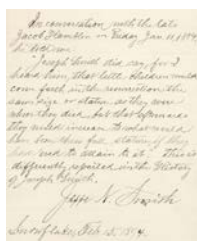 In conversation with the late
Jacob Hamblin on Friday Jan. 11, 1884,
he told me
"Joseph Smith did say, for I
heard him, that little children would
come forth in the resurrection the
same size or stature as they were
when they died, but that afterwards
they would increase to what would
have been their full stature if they
had lived to attain to it." This is
differently reported in the History
of Joseph Smith.
Jesse N. Smith
Snowflake, Feb. 13, 1894.